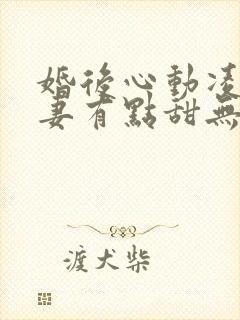 婚後心動凌
妻有點甜無
渡犬柴